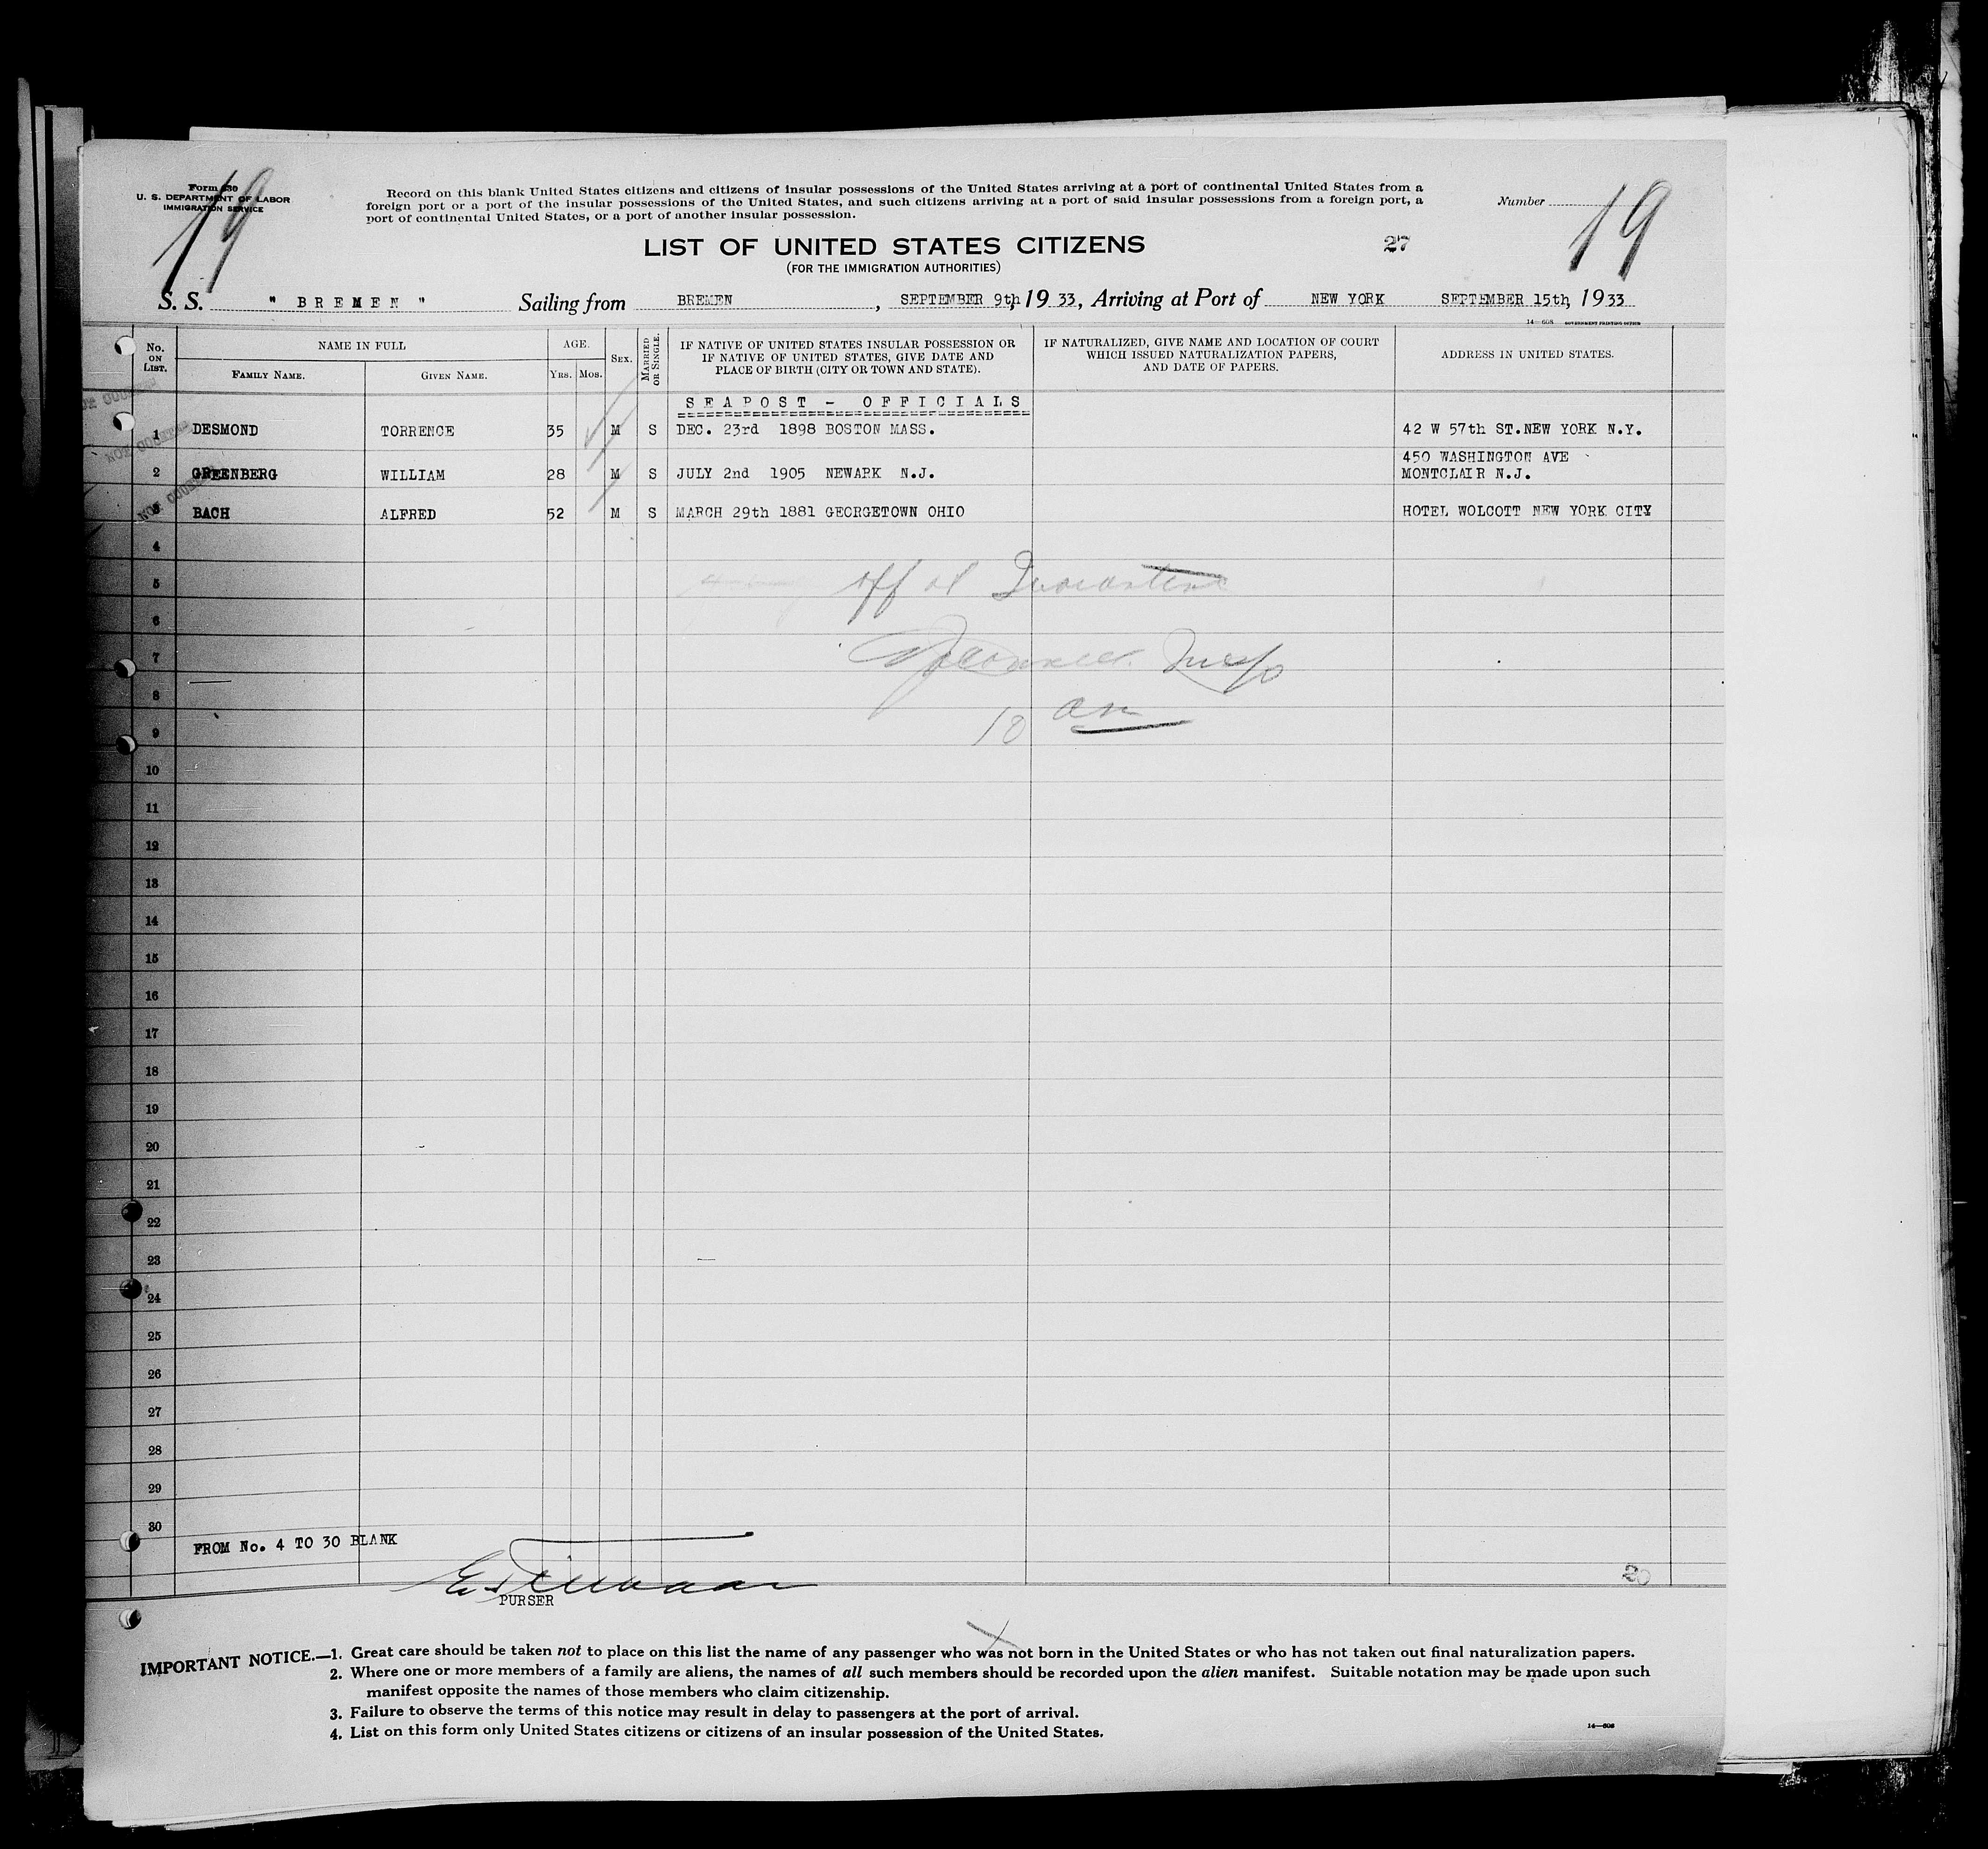 Form 630
U. S. DEPARTMENT OF LABOR
IMMIGRATION SERVICE
19
Record on this blank United States citizens and citizens of insular possessions of the United States arriving at a port of continental United States from a
foreign port or a port of the insular possessions of the United States, and such citizens arriving at a port of said insular possessions from a foreign port, a
port of continental United States, or a port of another insular possession.
Number
19
LIST OF UNITED STATES CITIZENS
27
(FOR THE IMMIGRATION AUTHORITIES)
S. S. " BREMEN " Sailing from BREMEN, SEPTEMBER 9th, 19 33, Arriving at Port of NEW YORK SEPTEMBER 15th, 19 33
14—608 GOVERNMENT PRINTING OFFICE
No. ON LIST.
NAME IN FULL
FAMILY NAME. GIVEN NAME.
AGE.
YRS. MOS.
SEX.
MARRIED OR SINGLE.
IF NATIVE OF UNITED STATES INSULAR POSSESSION OR
IF NATIVE OF UNITED STATES, GIVE DATE AND
PLACE OF BIRTH (CITY OR TOWN AND STATE).
IF NATURALIZED, GIVE NAME AND LOCATION OF COURT
WHICH ISSUED NATURALIZATION PAPERS,
AND DATE OF PAPERS.
ADDRESS IN UNITED STATES.
SEAPOST - OFFICIALS
1 DESMOND TORRENCE 35 M S DEC. 23rd 1898 BOSTON MASS. 42 W 57th ST.NEW YORK N.Y.
450 WASHINGTON AVE
2 GREENBERG WILLIAM 28 M S JULY 2nd 1905 NEWARK N.J. MONTCLAIR N.J.
3 BACH ALFRED 52 M S MARCH 29th 1881 GEORGETOWN OHIO HOTEL WOLCOTT NEW YORK CITY
4
5 off at Quarantine
6
7
8
10 am
9
10
11
12
13
14
15
16
17
18
19
20
21
22
23
24
25
26
27
28
29
30
FROM No. 4 TO 30 BLANK
20
PURSER
IMPORTANT NOTICE.—1. Great care should be taken not to place on this list the name of any passenger who was not born in the United States or who has not taken out final naturalization papers.
2. Where one or more members of a family are aliens, the names of all such members should be recorded upon the alien manifest. Suitable notation may be made upon such
manifest opposite the names of those members who claim citizenship.
3. Failure to observe the terms of this notice may result in delay to passengers at the port of arrival.
4. List on this form only United States citizens or citizens of an insular possession of the United States.
14—608